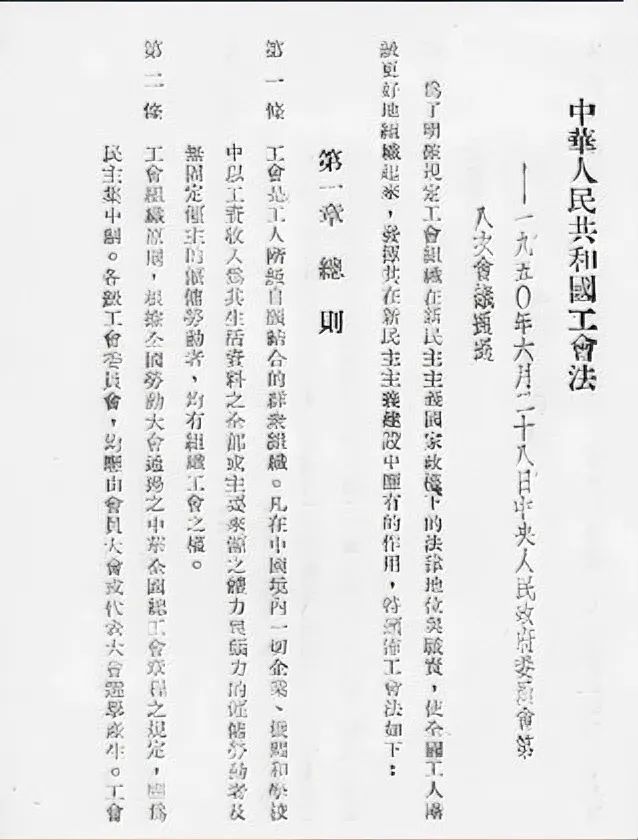 中華人民共和國工會法
——一九五〇年六月二十八日中央人民政府委員會第
八次會議通過
爲了明確規定工會組織在新民主主義國家政權下的法律地位與職責，使全國工人階
級更好地組織起來，發揮其在新民主主義建設中應有的作用，特頒佈工會法如下：
第一章 總則
第一條 工會是工人階級自願結合的群衆組織。凡在中國境內一切企業、機關和學校
中以工資收入爲其生活資料之全部或主要來源之體力與腦力的僱傭勞動者及
無固定僱主的僱傭勞動者，均有組織工會之權。
第二條 工會組織原則，根據全國勞動大會通過之中華全國總工會章程之規定，爲
民主集中制。各級工會委員會，均應由會員大會或代表大會選舉產生。工會